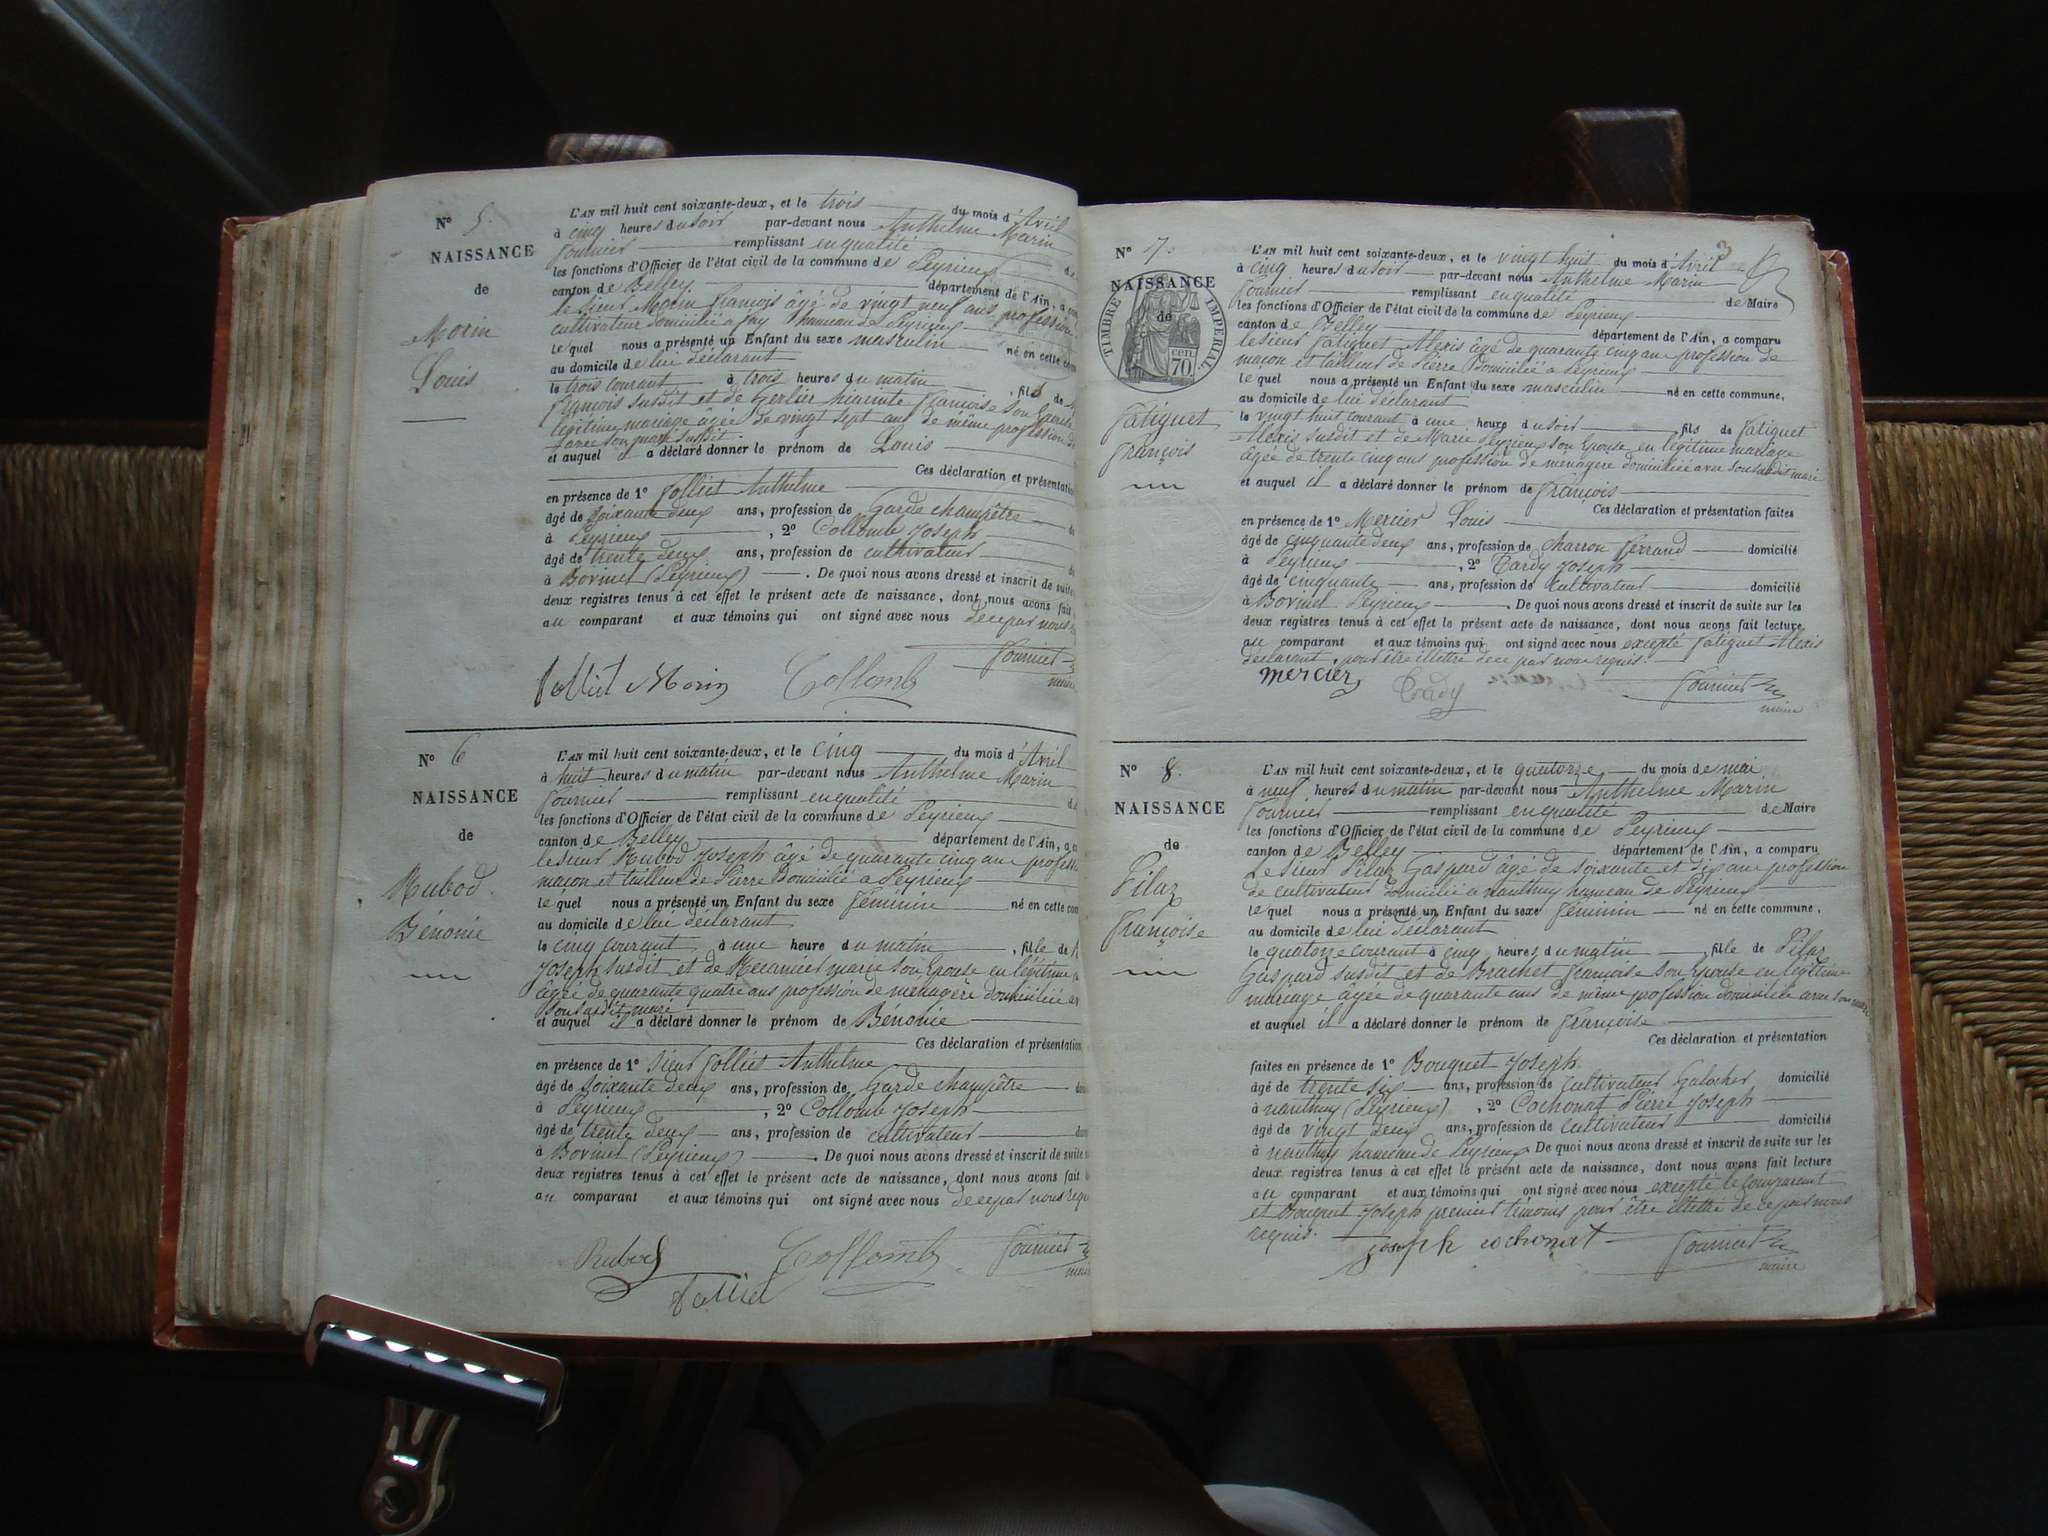 N° 5.
NAISSANCE
de
Morin
Louis
L'AN mil huit cent soixante-deux, et le trois du mois d'Avril
à cinq heures du soir par-devant nous Anthelme Marin
Fournier remplissant en qualité de
les fonctions d'Officier de l'état civil de la commune de Peyrieux
canton de Belley département de l'Ain, a com
le sieur Morin françois âgé de vingt neuf ans profession
cultivateur domicilié a hameau de Peyrieux
le quel nous a présenté un Enfant du sexe masculin né en cette com
au domicile de lui déclarant
le trois courant à trois heures du matin , fils de
françois susdit et de Gerlier françoise son Epouse
légitime mariage âgée de vingt sept ans de même profession
avec son mari susdit.
et auquel il a déclaré donner le prénom de Louis
Ces déclaration et présentation
en présence de 1° Jolliet Anthelme
âgé de soixante deux ans, profession de Garde champêtre
à Peyrieux , 2° Collomb Joseph
âgé de trente deux ans, profession de cultivateur
à Borinet (Peyrieux) . De quoi nous avons dressé et inscrit de suite
deux registres tenus à cet effet le présent acte de naissance, dont nous avons fait
au comparant et aux témoins qui ont signé avec nous de ce par nous
Jolliet Morin Collomb Fournier
maire
N° 6
NAISSANCE
de
Rubod
Bénonie
L'AN mil huit cent soixante-deux, et le cinq du mois d'Avril
à huit heures du matin par-devant nous Anthelme Marin
Fournier remplissant en qualité de
les fonctions d'Officier de l'état civil de la commune de Peyrieux
canton de Belley département de l'Ain, a
le sieur Rubod Joseph âgé de quarante cinq ans profess
maçon et tailleur de Pierre Domicilié a Peyrieux
le quel nous a présenté un Enfant du sexe féminin né en cette com
au domicile de lui déclarant
le cinq courant à une heure du matin , fille de
Joseph susdit et de marie son Epouse en légitime
âgée de quarante quatre ans profession de menagère domiciliée
son susdit mari
et auquel il a déclaré donner le prénom de Benonie
Ces déclaration et présentation
en présence de 1° Sieur Jolliet Anthelme
âgé de soixante deux ans, profession de Garde champêtre
à Peyrieux , 2° Collomb Joseph
âgé de trente deux ans, profession de cultivateur
à Borinet (Peyrieux) . De quoi nous avons dressé et inscrit de suite
deux registres tenus à cet effet le présent acte de naissance, dont nous avons fait
au comparant et aux témoins qui ont signé avec nous de ce par nous requ
Rubod Collomb Fournier
Jolliet maire
3
N° 7.
NAISSANCE
de
TIMBRE IMPERIAL
70 cen
Fatiguet
François
L'AN mil huit cent soixante-deux, et le vingt huit du mois d'Avril
à cinq heures du soir par-devant nous Anthelme Marin
Fournier remplissant en qualité de Maire
les fonctions d'Officier de l'état civil de la commune de Peyrieux
canton de Belley département de l'Ain, a comparu
le sieur Fatiguet Alexis âgé de quarante cinq ans profession de
maçon et tailleur de Pierre Domicilié a Peyrieux
le quel nous a présenté un Enfant du sexe masculin né en cette commune,
au domicile de lui déclarant
le vingt huit courant à une heure du soir fils de Fatiguet
Alexis susdit et de Marie Peyrieux son Epouse en légitime mariage
âgée de trente cinq ans profession de menagère domiciliée avec son susdit mari
et auquel il a déclaré donner le prénom de françois
Ces déclaration et présentation faites
en présence de 1° Mercier Louis
âgé de cinquante deux ans, profession de charron ferrand domicilié
à Peyrieux , 2° Tardy Joseph
âgé de cinquante ans, profession de cultivateur domicilié
à Borinet Peyrieux . De quoi nous avons dressé et inscrit de suite sur les
deux registres tenus à cet effet le présent acte de naissance, dont nous avons fait lecture
au comparant et aux témoins qui ont signé avec nous excepté Fatiguet Alexis
déclarant, pour être illettré de ce par nous requis.
mercier Tardy Fournier
maire
N° 8.
NAISSANCE
de
Pilaz
Françoise
L'AN mil huit cent soixante-deux, et le quatorze du mois de mai
à neuf heures du matin par-devant nous Anthelme Marin
Fournier remplissant en qualité de Maire
les fonctions d'Officier de l'état civil de la commune de Peyrieux
canton de Belley département de l'Ain, a comparu
Le sieur Pilaz Gaspard âgé de soixante et dix ans profession
de cultivateur domicilié a nanthuy hameau de Peyrieux
le quel nous a présenté un Enfant du sexe féminin né en cette commune,
au domicile de lui déclarant
le quatorze courant à cinq heures du matin , fille de Pilaz
Gaspard susdit et de Brachet françoise son Epouse en légitime
mariage âgée de quarante ans de même profession domiciliée avec son mari
et auquel il a déclaré donner le prénom de françoise
Ces déclaration et présentation
faites en présence de 1° Bouquet Joseph
âgé de trente six ans, profession de cultivateur Galocher domicilié
à nanthuy (Peyrieux) , 2° Cochonat Pierre Joseph
âgé de vingt deux ans, profession de cultivateur domicilié
à nanthuy hameau de Peyrieux De quoi nous avons dressé et inscrit de suite sur les
deux registres tenus à cet effet le présent acte de naissance, dont nous avons fait lecture
au comparant et aux témoins qui ont signé avec nous excepté le comparant
et Bouquet Joseph premier témoins pour être illettré de ce par nous
requis.
joseph cochonat Fournier
maire